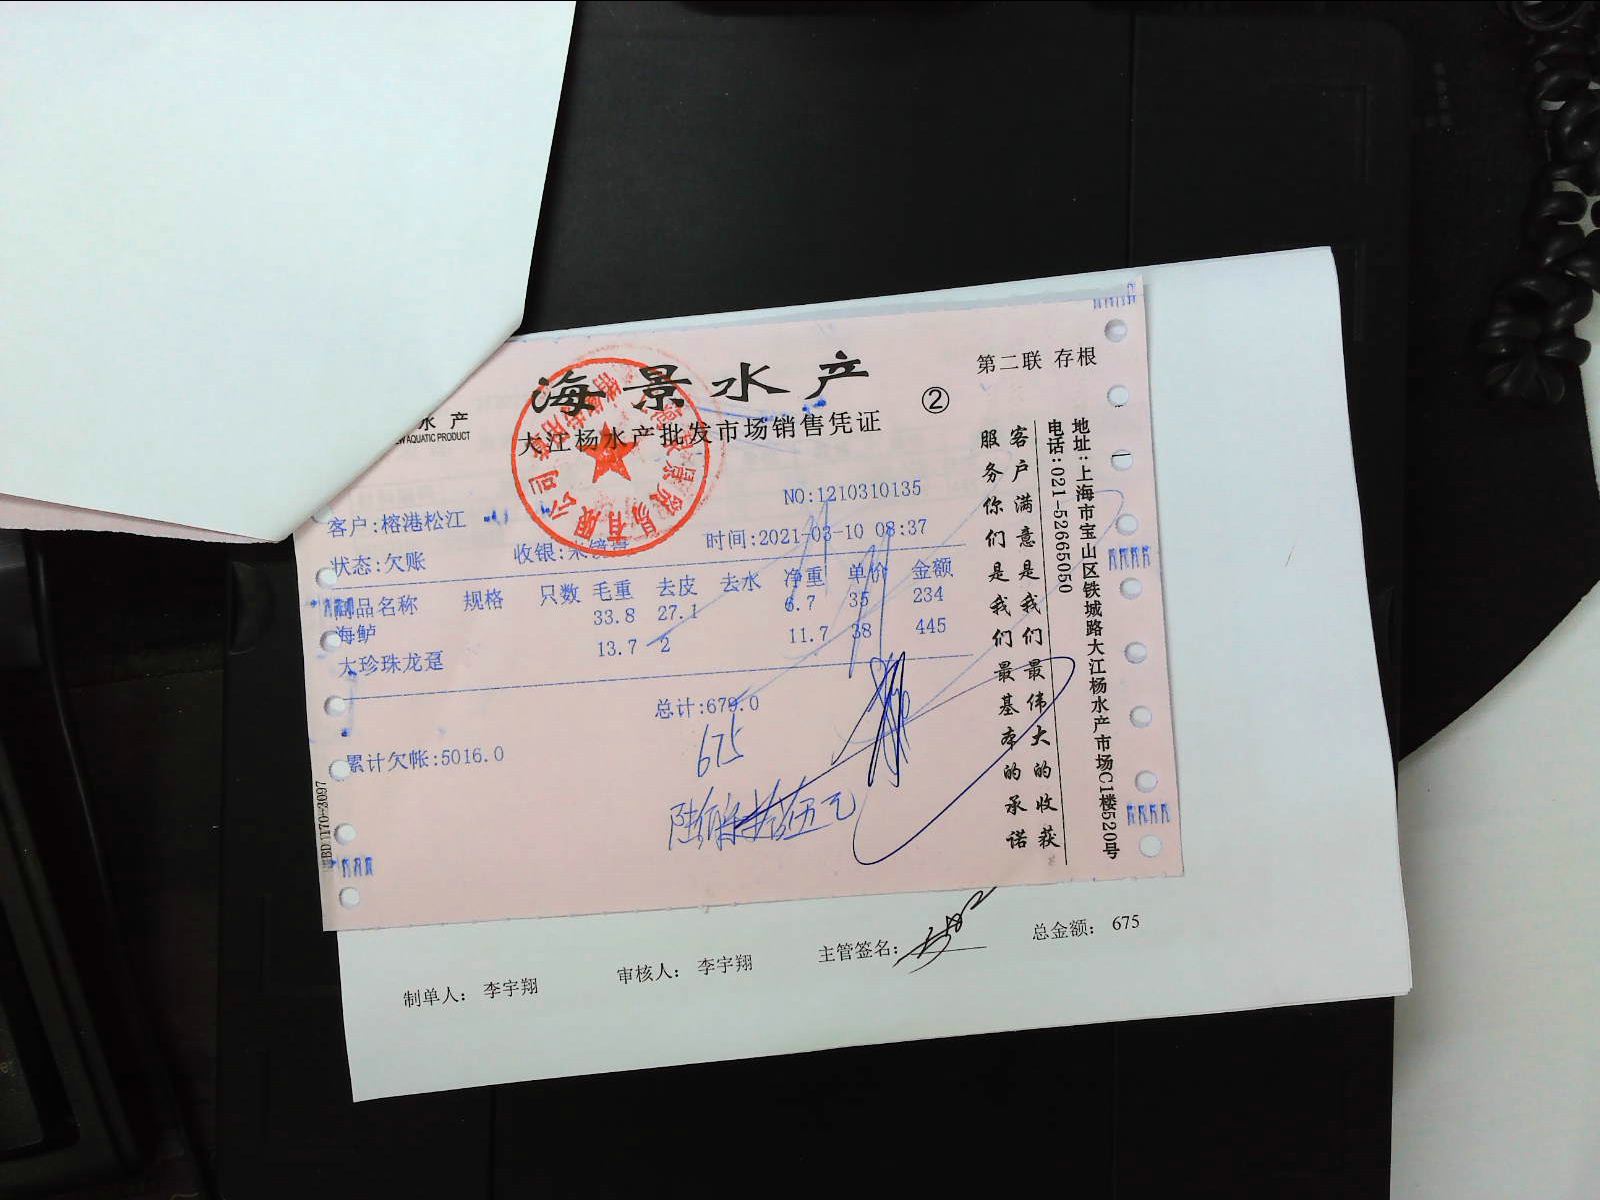 海景水产
②
第二联 存根
水产
AQUATIC PRODUCT
大江杨水产批发市场销售凭证
NO:1210310135
客户:榕港松江
状态:欠账
收银:
时间:2021-03-10 08:37
商品名称 规格 只数 毛重 去皮 去水 净重 单价 金额
海鲈 33.8 27.1 6.7 35 234
大珍珠龙趸 13.7 2 11.7 38 445
总计:679.0
675
累计欠帐:5016.0
陆佰柒拾伍元
客户满意是我们最伟大的收获
服务你们是我们最基本的承诺
地址:上海市宝山区铁城路大江杨水产市场C1楼520号
电话:021-52665050
制单人: 李宇翔
审核人: 李宇翔
主管签名:
总金额: 675